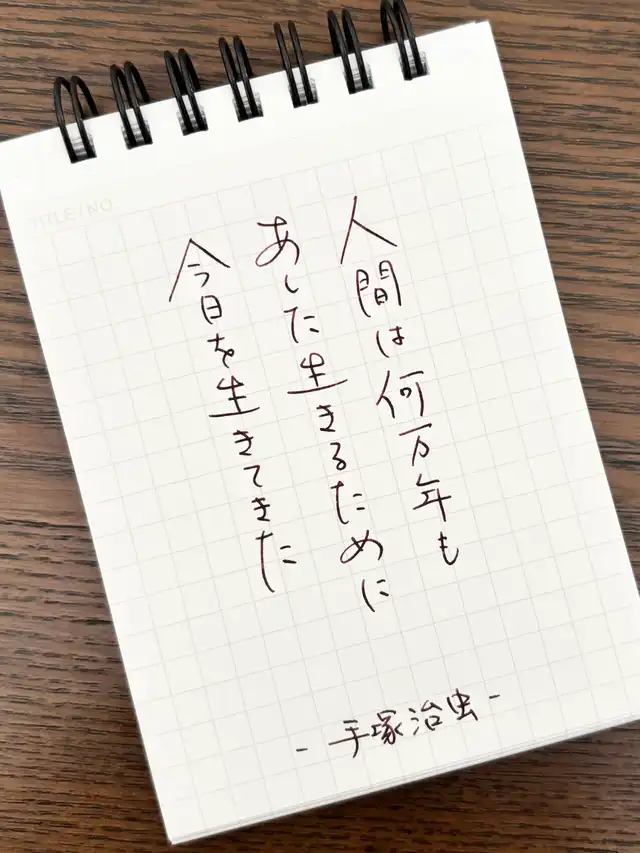 TITLE / NO
人間は何万年も
あした生きるために
今日を生きてきた
- 手塚治虫 -